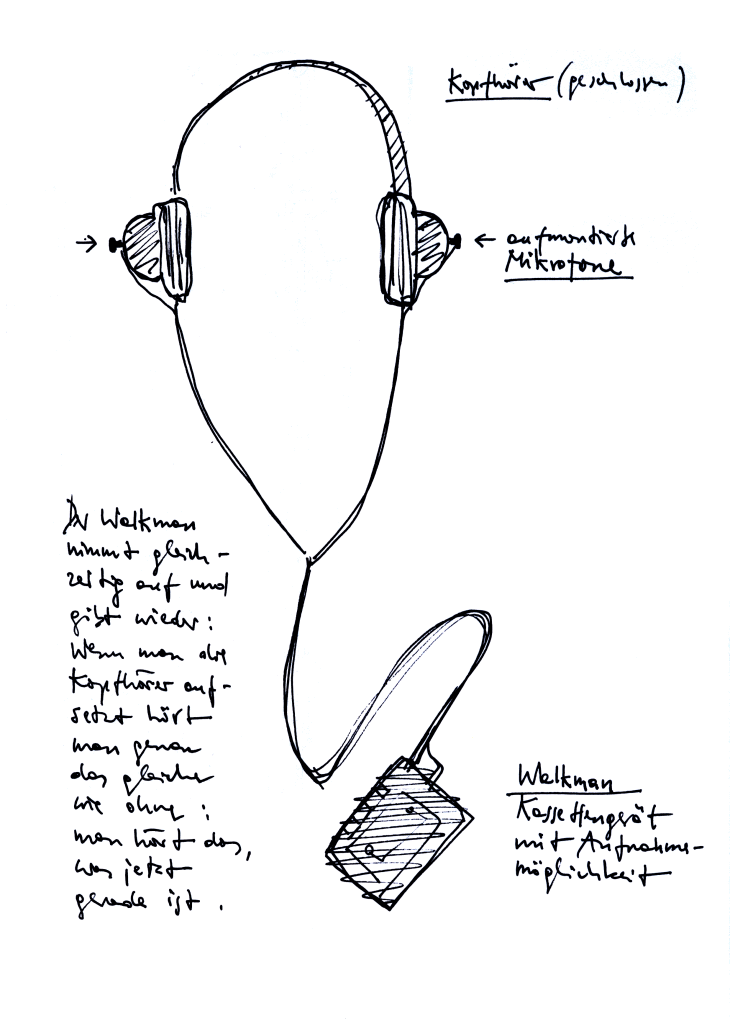 Kopfhörer (geschlossen)
← aufmontierte
Mikrofone
Der Walkman
nimmt gleich-
zeitig auf und
gibt wieder:
Wenn man die
Kopfhörer auf-
setzt hört
man genau
das gleiche
wie ohne:
man hört das,
was jetzt
gerade ist.
Walkman
Kassettengerät
mit Aufnahme-
möglichkeit